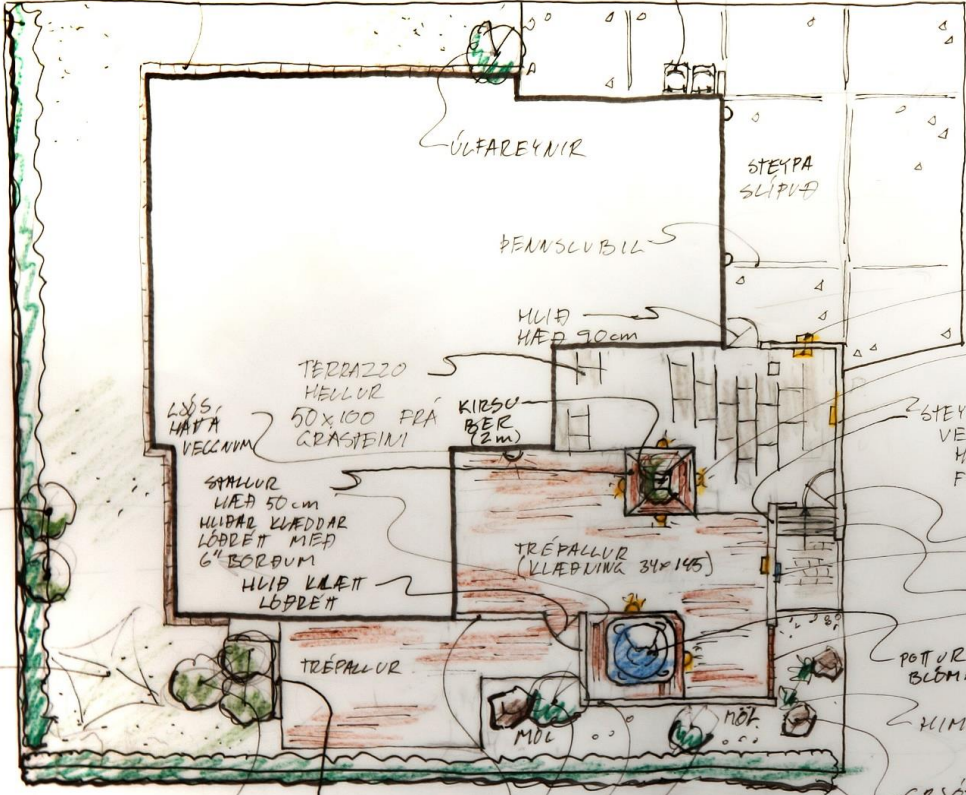 ÚLFAREYNIR
STEYPA
SLÍPUÐ
ÞENNSLUBIL
HLIÐ
HÆÐ 90cm
TERRAZZO
HELLUR
50x100 FRÁ
GRÁSTEINI
KIRSU
BER
(2m)
LJÓS
HÁTT Á
VEGGNUM
STEY
VE
H
F
STALLUR
HÆÐ 50 cm
HLIÐAR KLÆDDAR
LÓÐRÉTT MEÐ
6" BORÐUM
HLIÐ KLÆTT
LÓÐRÉTT
TRÉPALLUR
(KLÆÐNING 34x145)
TRÉPALLUR
POTTUR
BLÓM
MÖL
MÖL
HIM